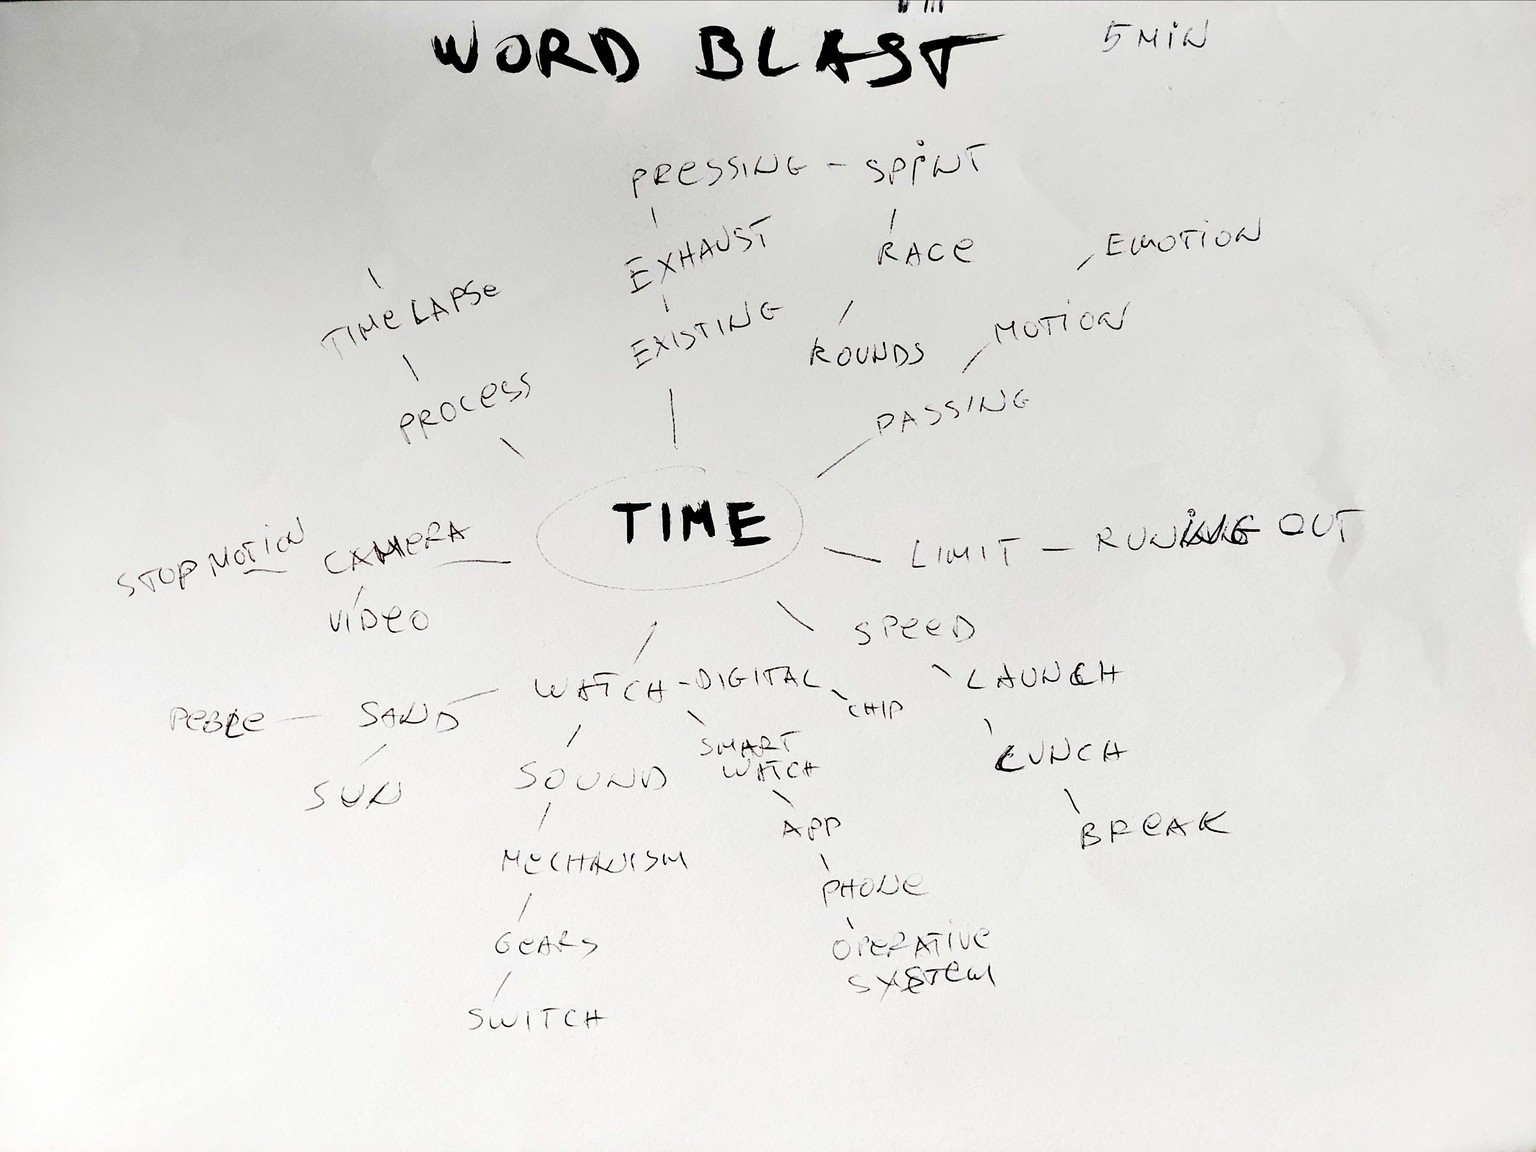 WORD BLAST
5 MIN
PRESSING - SPINT
EXHAUST
RACE
EMOTION
TIMELAPSE
EXISTING
ROUNDS
MOTION
PROCESS
PASSING
TIME
STOP MOTION
CAMERA
LIMIT - RUNING OUT
VIDEO
SPEED
WATCH - DIGITAL
LAUNCH
CHIP
PEBLE
SAND
SMART
WATCH
LUNCH
SUN
SOUND
APP
BREAK
MECHANISM
PHONE
GEARS
OPERATIVE
SYSTEM
SWITCH